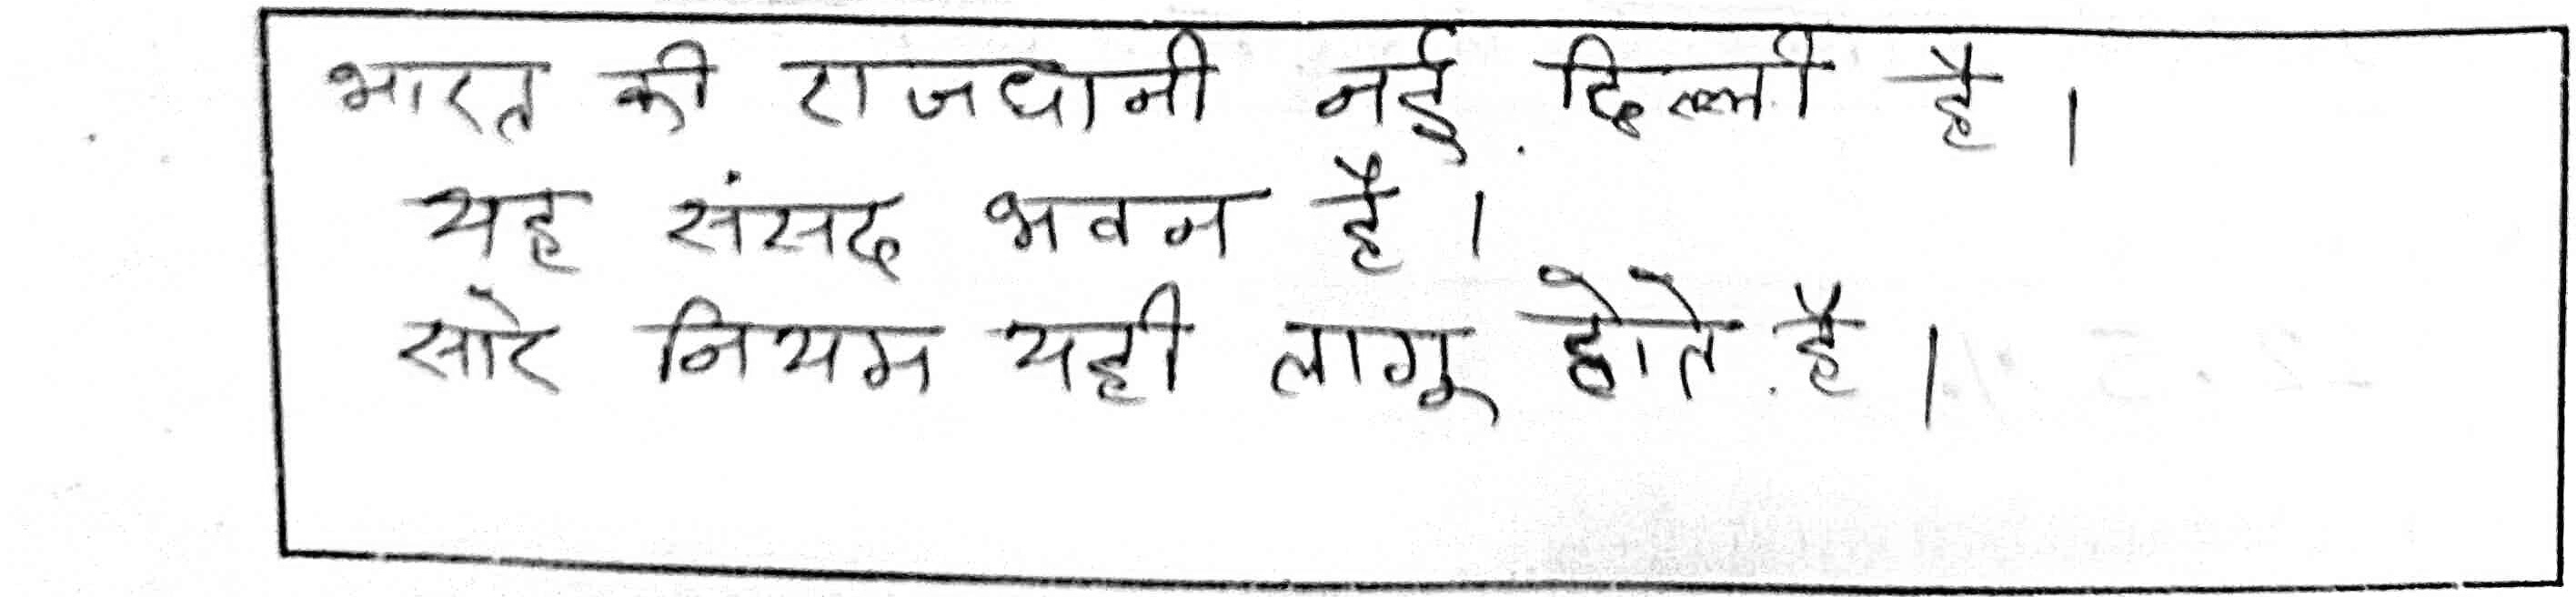 भारत की राजधानी नई दिल्ली है।
यह संसद भवन है।
सारे नियम यही लागू होते है।